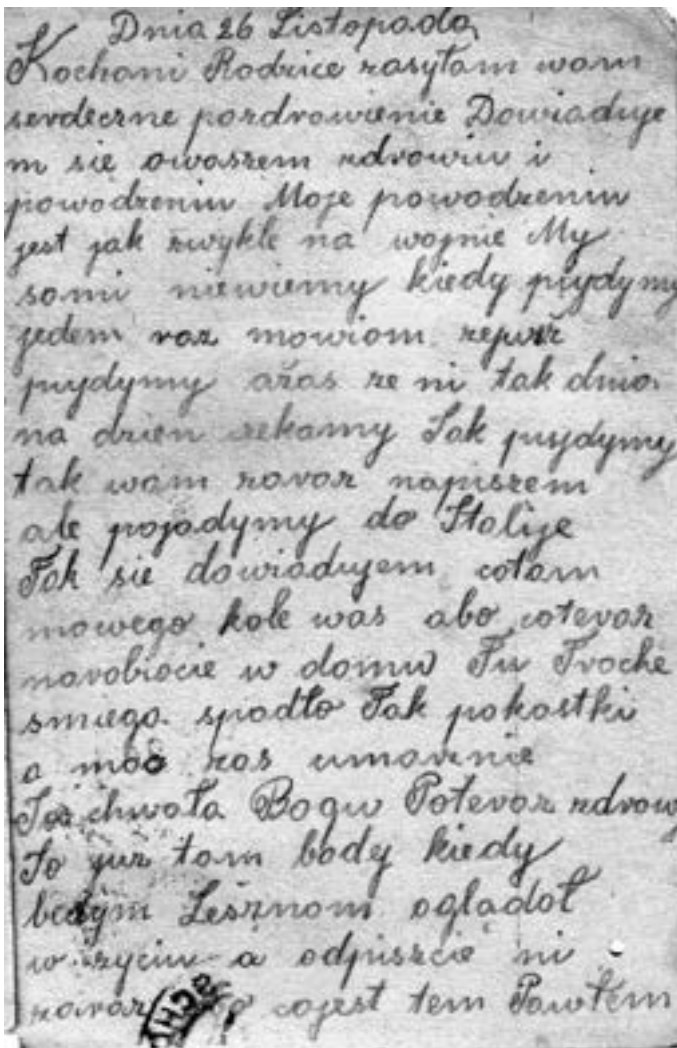 Dnia 26 Listopada
Kochani Rodzice zasyłam wam
serdeczne pozdrowienie Dowiaduje
m sie owaszem zdrowiu i
powodzeniu Moje powodzeniu
jest jak zwykle na wojnie My
sami niewiemy kiedy pujdymy
jedem raz mowiom zejuż
pujdymy ažas ze ni tak dnia
na dzien cekamy Jak pujdymy
tak wam zaraz napiszem
ale pojadymy do Italije
Tak sie dowiadujem cotam
nowego kole was abo coteraz
narobiocie w domu Tu Troche
sniega spadło Tak pokostki
a mo zas umarznie
chwała Bogu Poteraz zdrowy
To juz tam body kiedy
bedym Leśznom oglądoł
w zyciu a odpiszcie ni
zaraz cojest tem Pawłem